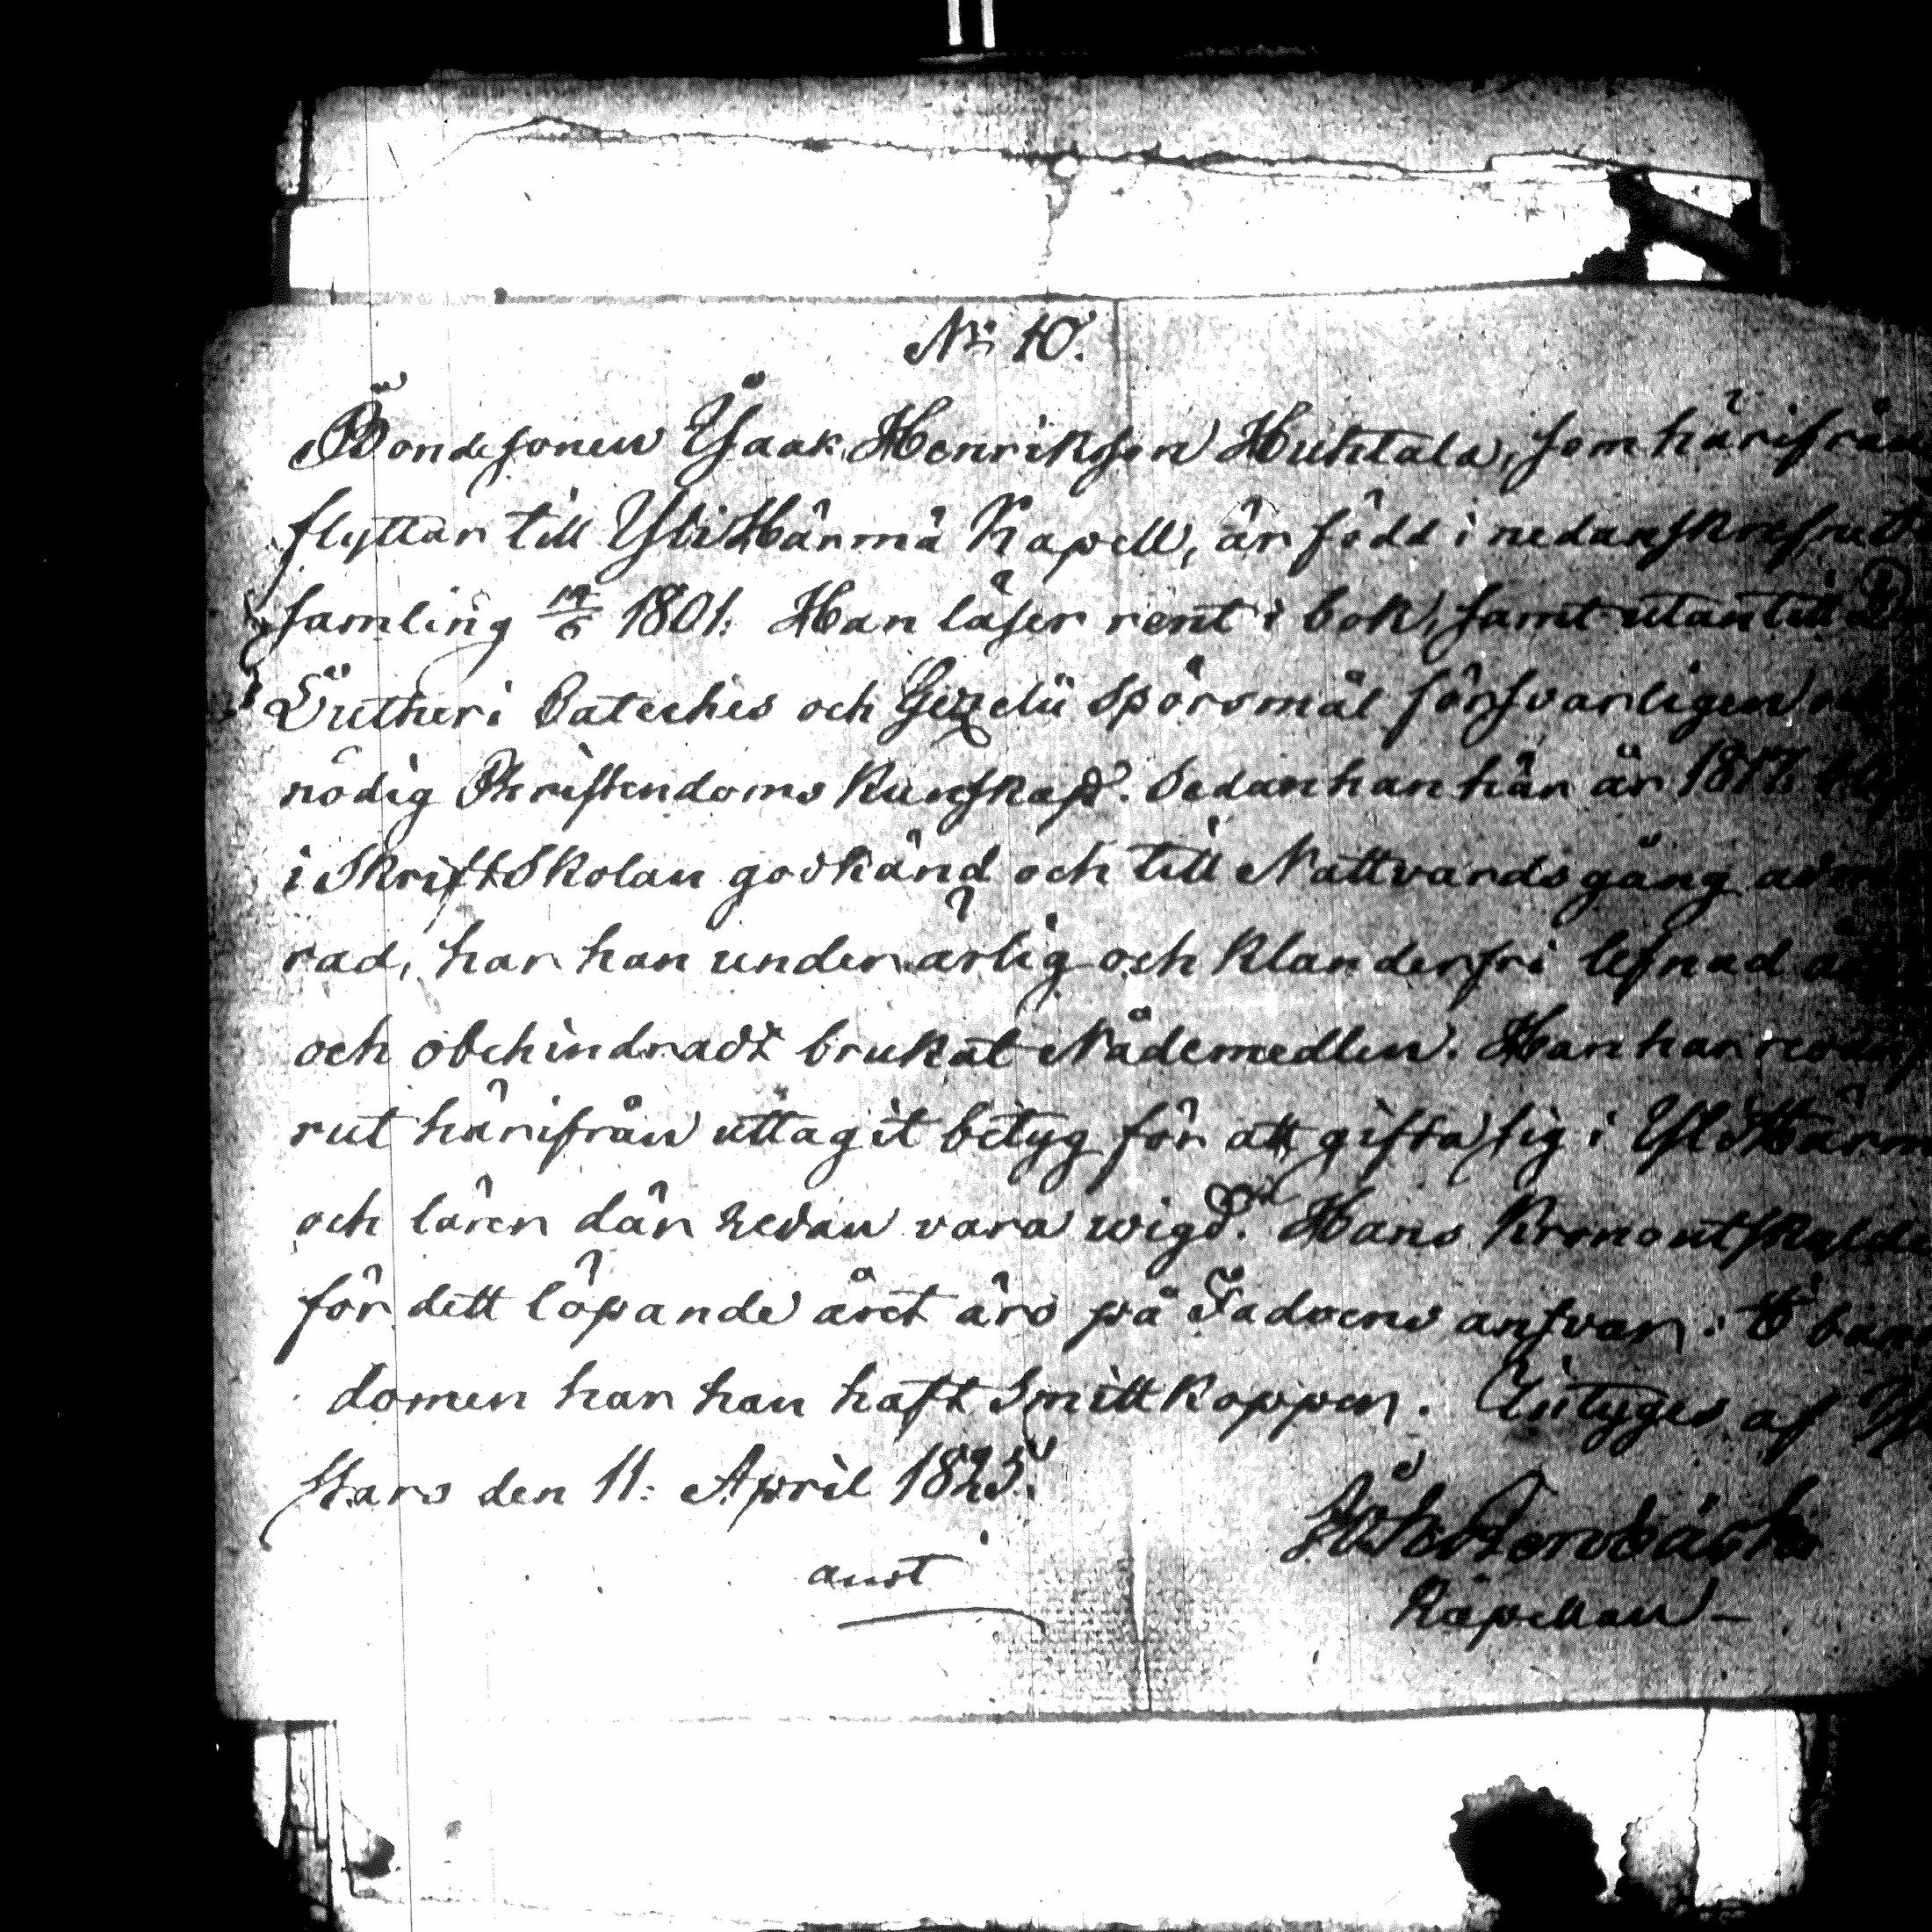 No 40.
Bondesonen Isaak Henriksson Huhtala, som härifrån
flyttar till YliHärmä Kapell, är född i nedanskrefne
samling 19/6 1801. Han läser rent i bok, samt utantill
Lutheri Cateches och Gezelii Spörsmål försvarligen
nödig Christendoms Kunskap. Sedan han här år 1817
i Skriftskolan godkänd och till Nattvardsgång
rad, har han under ärlig och klanderfri lefnad
och obehindradt brukat Nådemedlen. Han har
rut härifrån uttagit betyg för att gifta sig i YliHärm
och lärer där redan vara wigd. Hans Kronoutskylder
för dett löpande året äro på Fadrens ansvar. I barn
domen har han haft Smittkoppor. Intyges af
Staro den 11: April 1825.
Kapellan